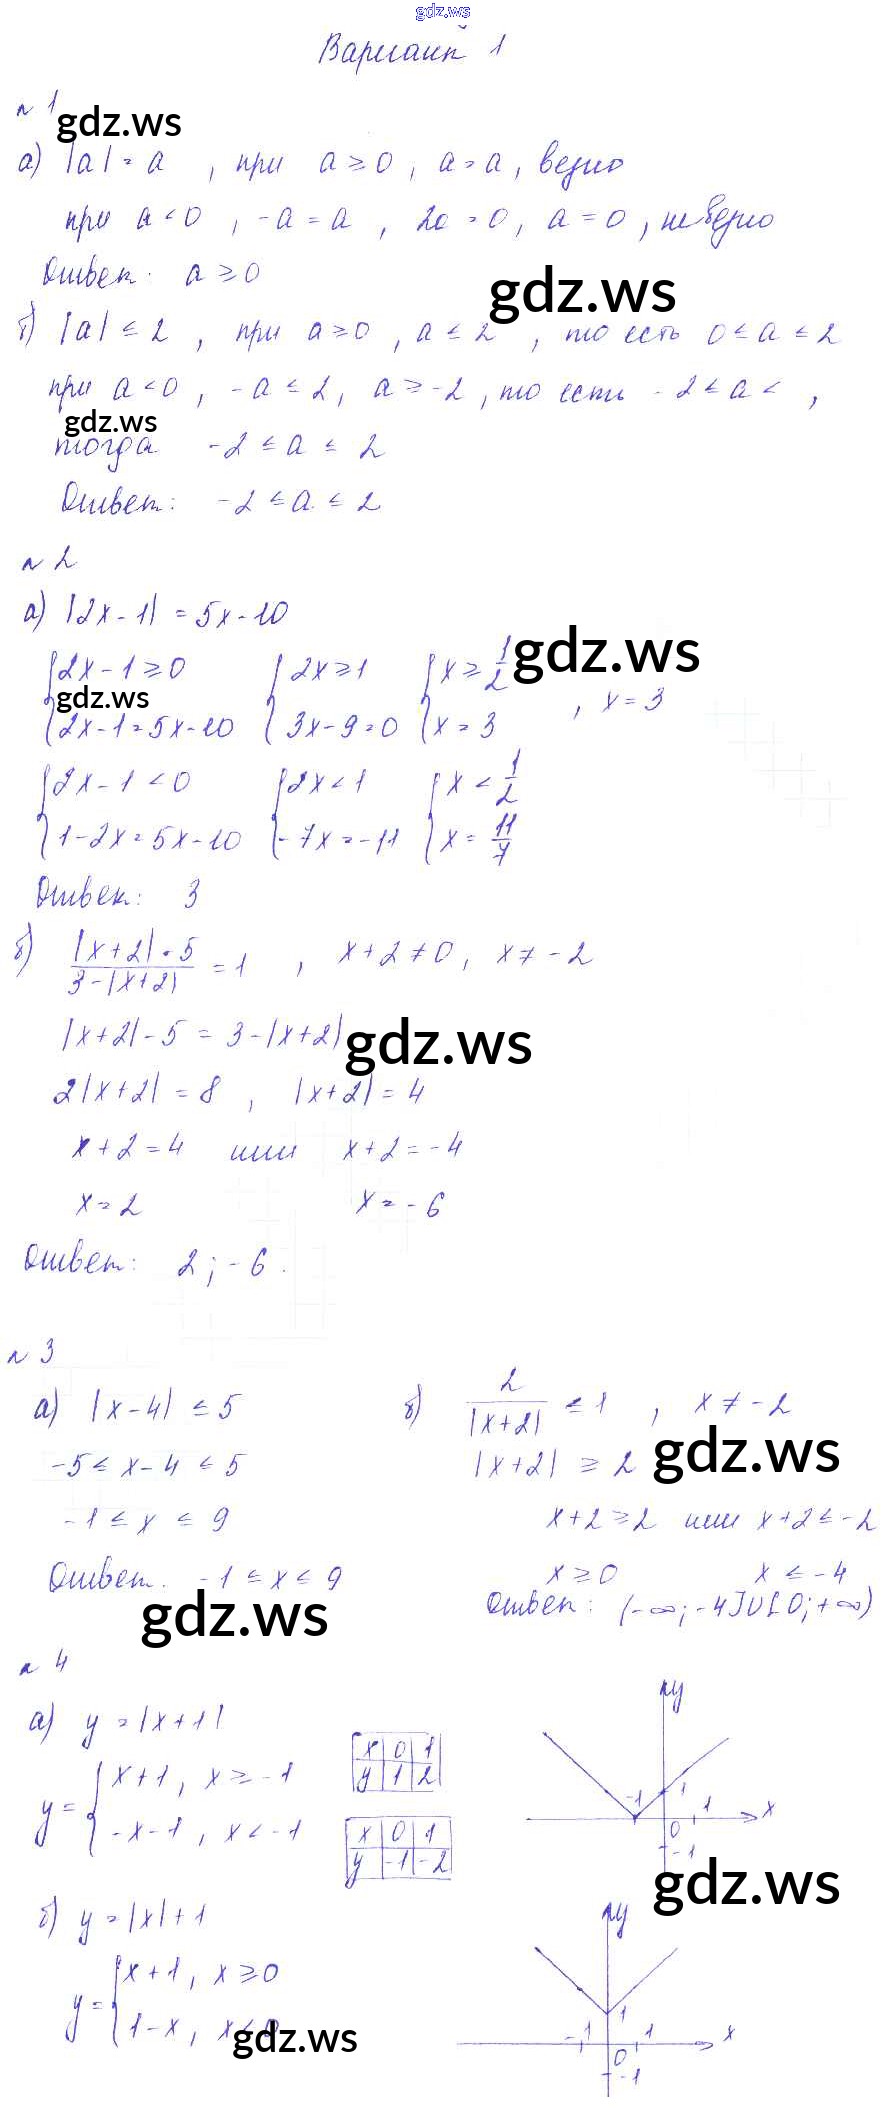 gdz.ws
Вариант 1
№ 1
gdz.ws
а) |a| = a , при a ≥ 0 , a = a , верно
при a < 0 , -a = a , 2a = 0 , a = 0 , неверно
Ответ: a ≥ 0
gdz.ws
б) |a| ≤ 2 , при a ≥ 0 , a ≤ 2 , то есть 0 ≤ a ≤ 2
при a < 0 , -a ≤ 2 , a ≥ -2 , то есть -2 ≤ a < ,
gdz.ws
тогда -2 ≤ a ≤ 2
Ответ: -2 ≤ a ≤ 2
№ 2
а) |2x - 1| = 5x - 10
{ 2x - 1 ≥ 0 { 2x ≥ 1 { x ≥ 1/2
gdz.ws
gdz.ws
2x - 1 = 5x - 10 3x - 9 = 0 x = 3 , x = 3
{ 2x - 1 < 0 { 2x < 1 { x < 1/2
1 - 2x = 5x - 10 -7x = -11 x = 11/7
Ответ: 3
б) |x + 2| - 5 / 3 - |x + 2| = 1 , x + 2 ≠ 0 , x ≠ -2
|x + 2| - 5 = 3 - |x + 2|
gdz.ws
2|x + 2| = 8 , |x + 2| = 4
x + 2 = 4 или x + 2 = -4
x = 2 x = -6
Ответ: 2 ; -6 .
№ 3
а) |x - 4| ≤ 5
-5 ≤ x - 4 ≤ 5
-1 ≤ x ≤ 9
Ответ: -1 ≤ x ≤ 9
gdz.ws
б) 2 / |x + 2| ≤ 1 , x ≠ -2
gdz.ws
|x + 2| ≥ 2
x + 2 ≥ 2 или x + 2 ≤ -2
x ≥ 0 x ≤ -4
Ответ: (-∞; -4] U [0; +∞)
№ 4
а) y = |x + 1|
y = { x + 1 , x ≥ -1
-x - 1 , x < -1
x 0 1
y 1 2
x 0 1
y -1 -2
y
-1 1
0 1 x
-1
gdz.ws
б) y = |x| + 1
y = { x + 1 , x ≥ 0
1 - x , x < 0
gdz.ws
y
1
-1 0 1 x
-1